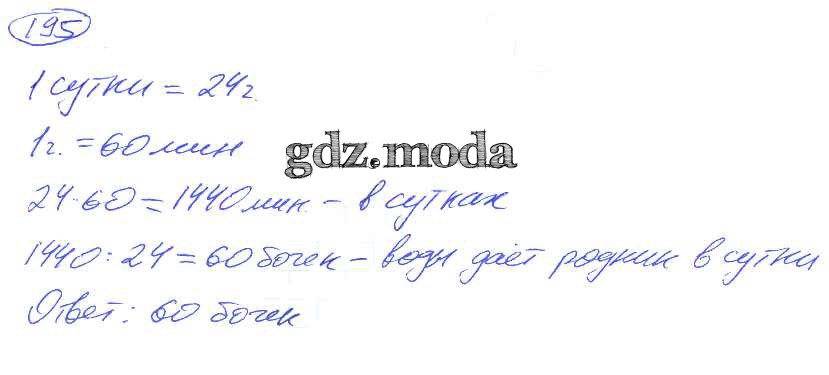 195
1 сутки = 24г.
1г. = 60 мин
gdz.moda
24·60 = 1440 мин. – в сутках
1440 : 24 = 60 бочек – воды даёт родник в сутки
Ответ: 60 бочек